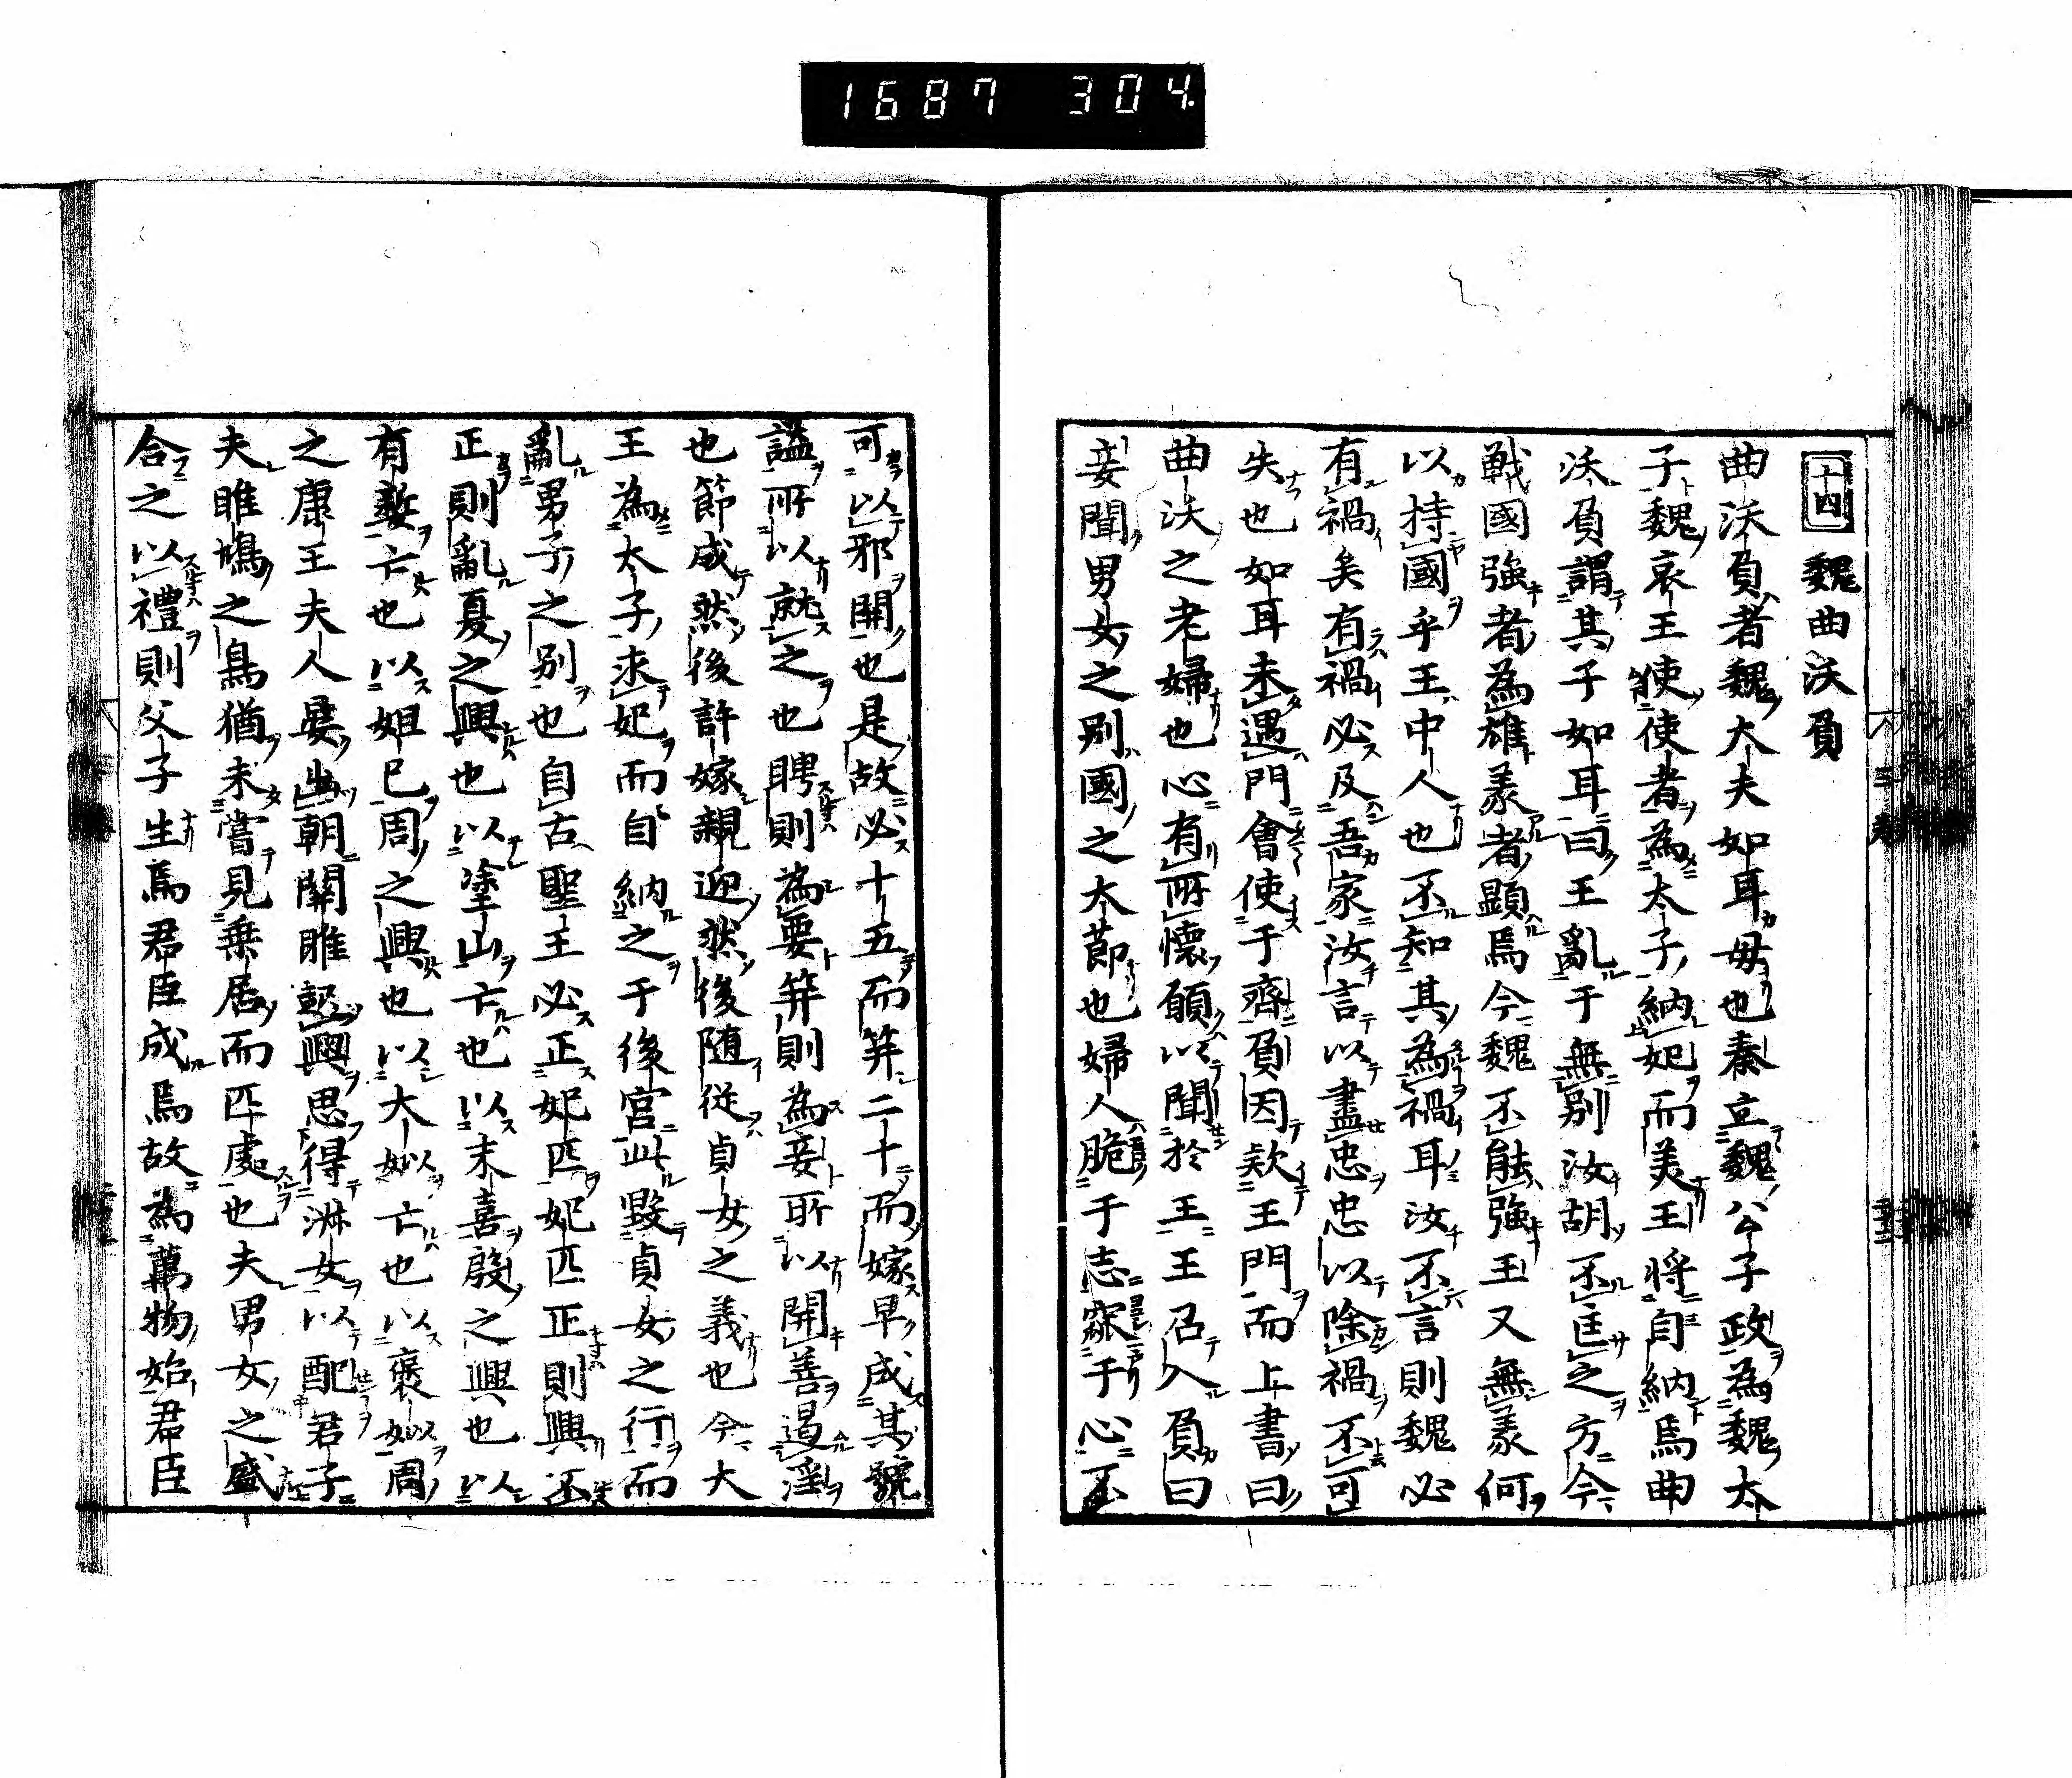 1687 304.
十四 魏曲沃負
曲沃負者魏大夫如耳母也秦立魏公子政為魏太
子魏哀王使使者為太子納妃而美王將自納焉曲
沃負謂其子如耳曰王亂于無別汝胡不匡之方今
戦國強者為雄義者顕焉今魏不能強王又無義何
以持國乎王中人也不知其為禍耳汝不言則魏必
有禍矣有禍必及吾家汝言以盡忠忠以除禍不可
失也如耳未遇門會使于齊負因欵王門而上書曰
曲沃之老婦也心有所懐願以聞於王王召入負曰
妾聞男女之別國之大節也婦人脆于志窳于心不
可以邪開也是故必十五而筓二十而嫁早成其號
謚所以就之也聘則為妻奔則為妾所以開善遏淫
也節成然後許嫁親迎然後随從貞女之義也今大
王為太子求妃而自納之于後宮此毀貞女之行而
亂男子之別也自古聖王必正妃匹妃匹正則興不
正則亂夏之興也以塗山亡也以末喜殷之興也以
有㜪亡也以妲己周之興也以大姒亡也以褒姒周
之康王夫人晏出朝關雎起興思得淋女以配君子
夫雎鳩之鳥猶未嘗見乗居而匹處也夫男女之盛
合之以禮則父子生焉君臣成焉故為萬物始君臣